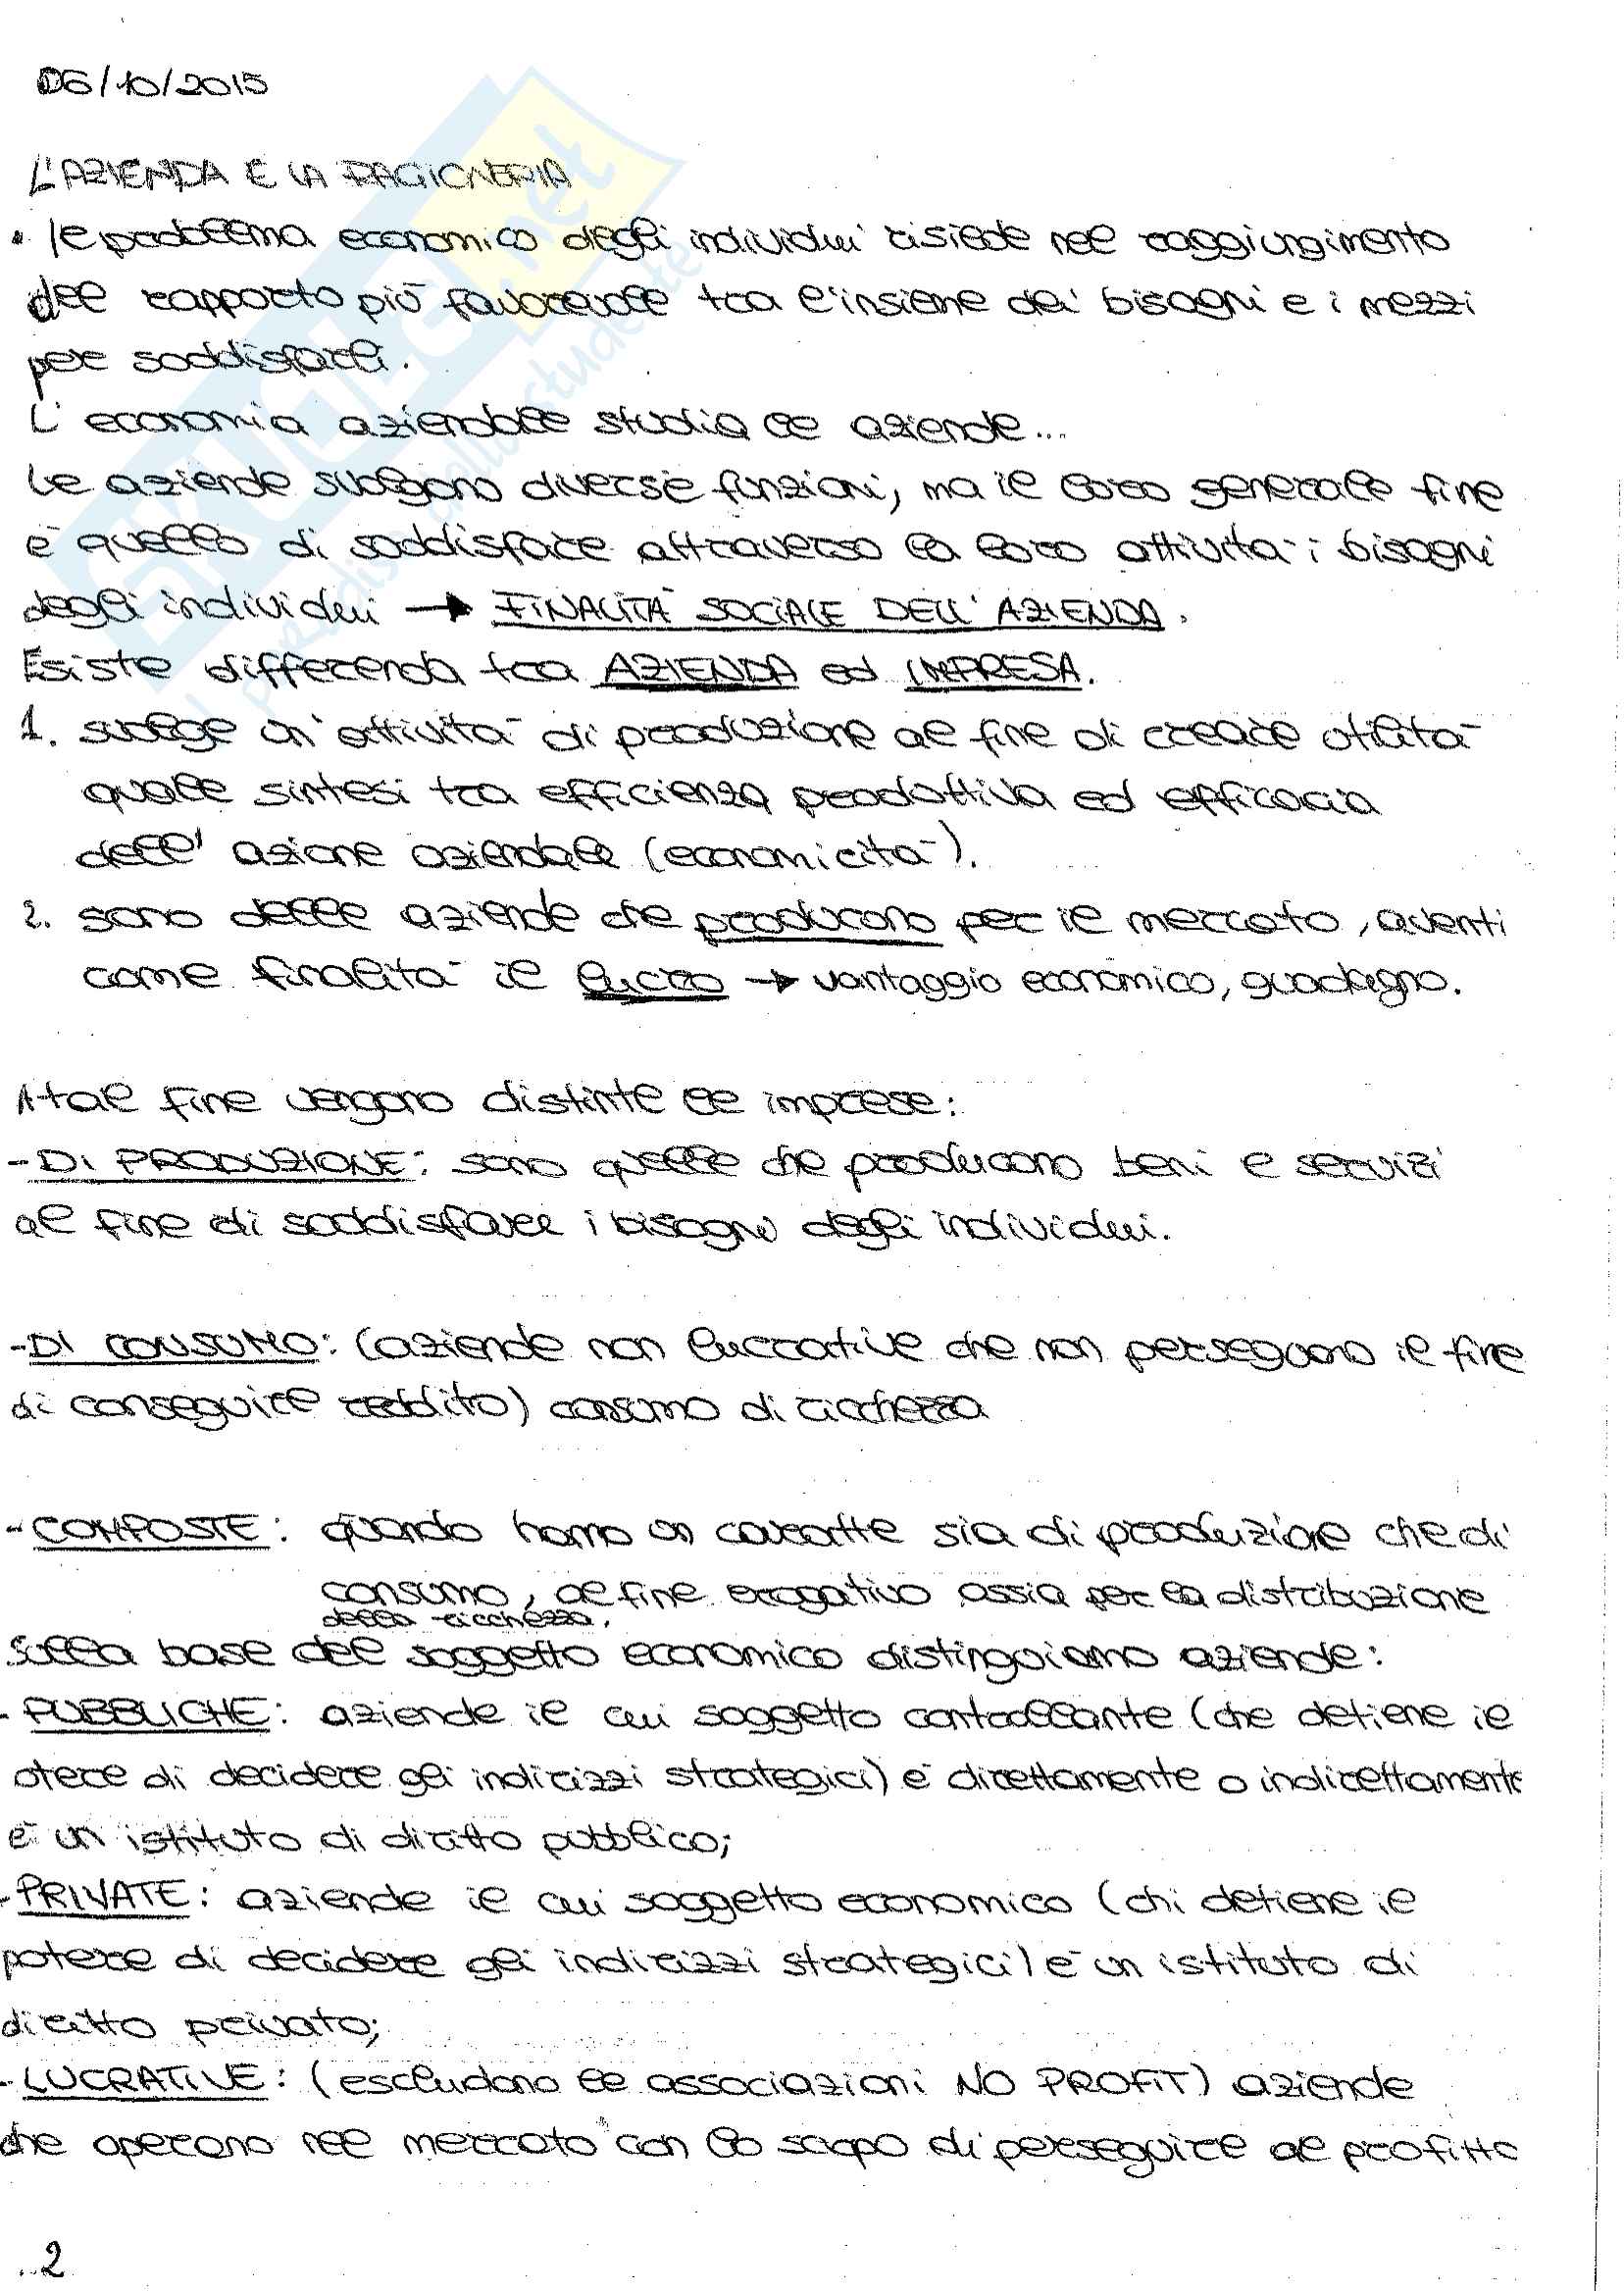 06/10/2015
L'AZIENDA E LA RAGIONERIA
• Il problema economico degli individui risiede nel raggiungimento
del rapporto più favorevole tra l'insieme dei bisogni e i mezzi
per soddisfarli.
L'economia aziendale studia le aziende...
Le aziende svolgono diverse funzioni, ma il loro generale fine
è quello di soddisfare attraverso la loro attività i bisogni
degli individui → FINALITÀ SOCIALE DELL'AZIENDA.
Esiste differenza tra AZIENDA ed IMPRESA.
1. svolge un'attività di produzione al fine di creare utilità
quale sintesi tra efficienza produttiva ed efficacia
dell'azione aziendale (economicità).
2. sono delle aziende che producono per il mercato, aventi
come finalità il lucro → vantaggio economico, guadagno.
A tal fine vengono distinte le imprese:
- DI PRODUZIONE: sono quelle che producono beni e servizi
al fine di soddisfare i bisogni degli individui.
- DI CONSUMO: (aziende non lucrative che non perseguono il fine
di conseguire reddito) consumo di ricchezza
- COMPOSTE: quando hanno un carattere sia di produzione che di
consumo, al fine erogativo ossia per la distribuzione
della ricchezza.
Sulla base del soggetto economico distinguiamo aziende:
- PUBBLICHE: aziende il cui soggetto controllante (che detiene il
otere di decidere gli indirizzi strategici) è direttamente o indirettamente
è un istituto di diritto pubblico;
- PRIVATE: aziende il cui soggetto economico (chi detiene il
potere di decidere gli indirizzi strategici) è un istituto di
diritto privato;
- LUCRATIVE: (escludono le associazioni NO PROFIT) aziende
che operano nel mercato con lo scopo di perseguire al profitto
2